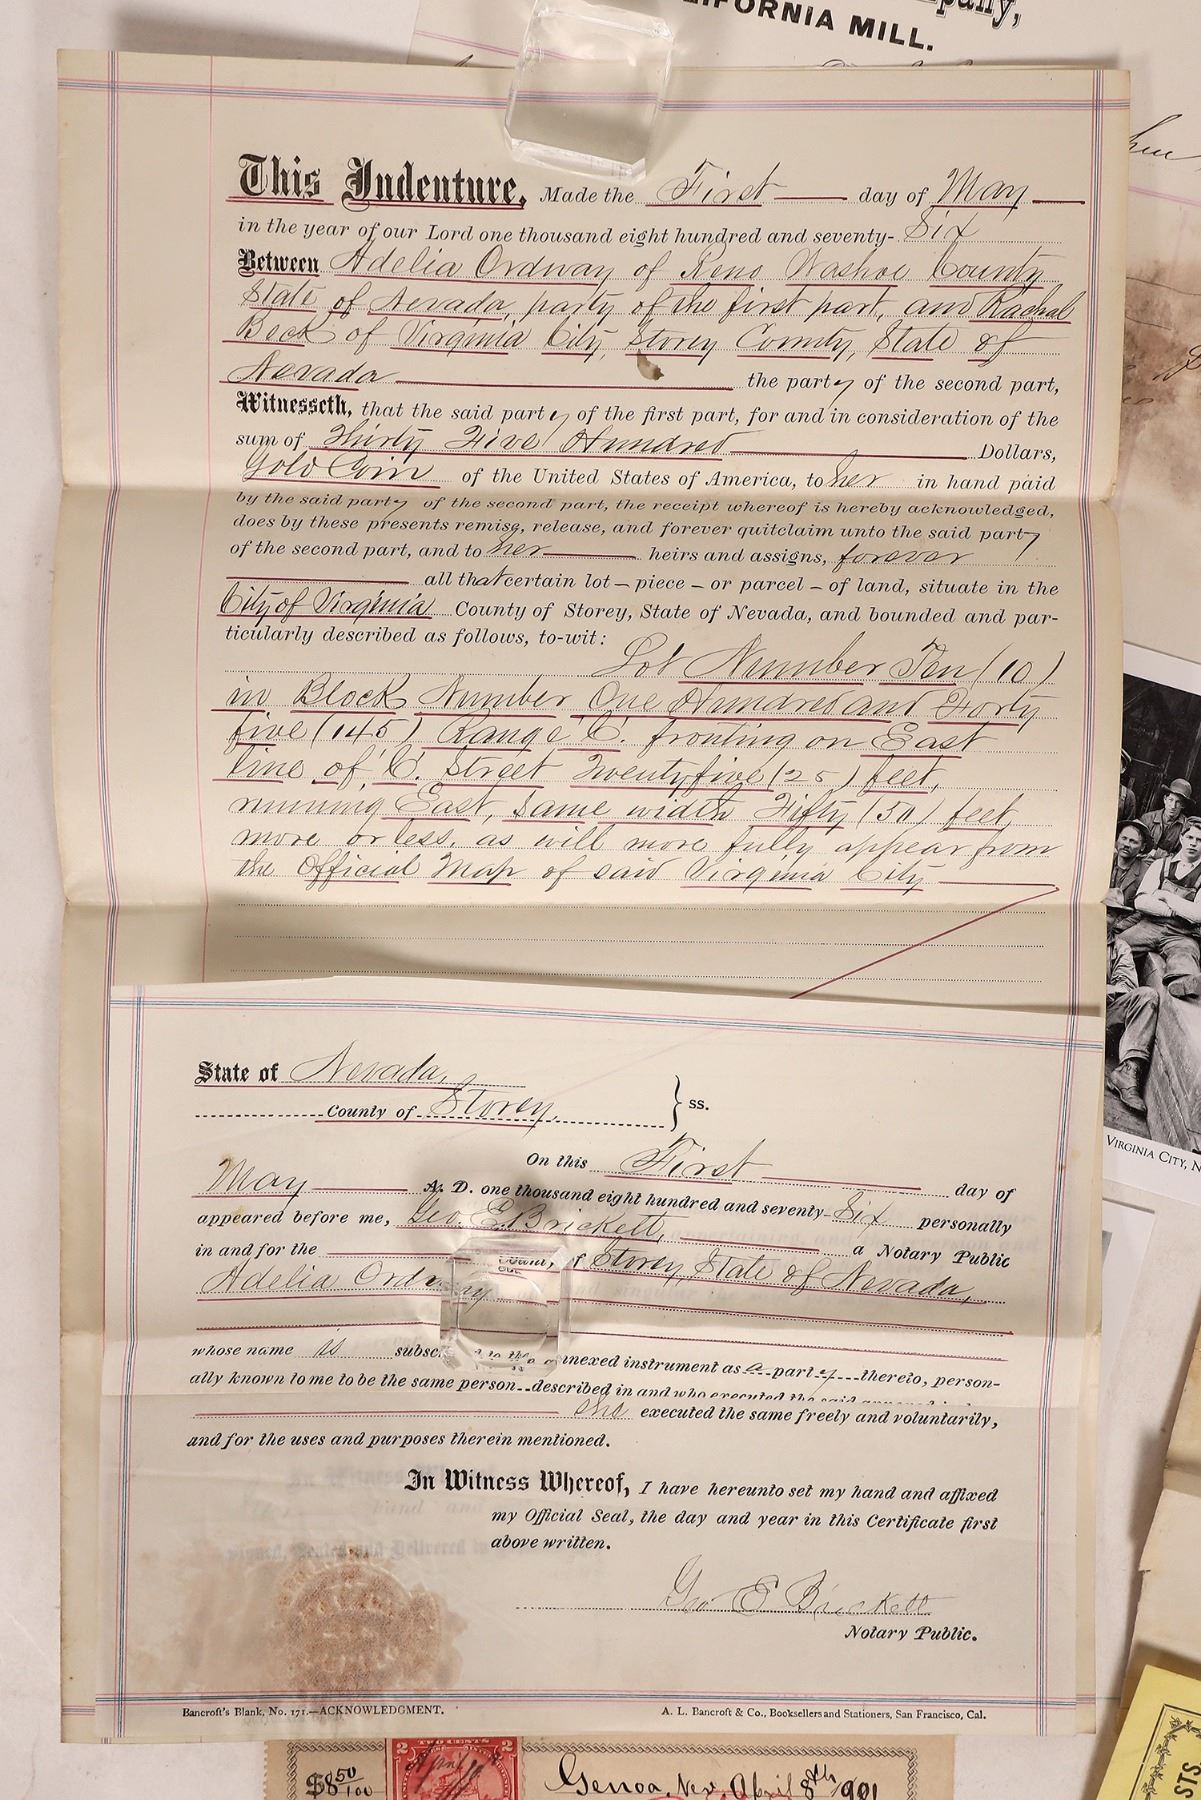 CALIFORNIA MILL.
This Indenture, Made the First day of May
in the year of our Lord one thousand eight hundred and seventy- Six
Between Adelia Ordway of Reno Washoe County
State of Nevada, party of the first part, and Rachal
Beck of Virginia City, Storey County, State of
Nevada the party of the second part,
Witnesseth, that the said party of the first part, for and in consideration of the
sum of Thirty Five Hundred Dollars,
Gold Coin of the United States of America, to her in hand paid
by the said party of the second part, the receipt whereof is hereby acknowledged,
does by these presents remise, release, and forever quitclaim unto the said party
of the second part, and to her heirs and assigns, forever
all that certain lot – piece – or parcel – of land, situate in the
City of Virginia County of Storey, State of Nevada, and bounded and par-
ticularly described as follows, to-wit:
Lot Number Ten (10)
in Block Number One Hundred and Forty
five (145) Range C. fronting on East
line of C. Street Twenty five (25) feet,
running East, same width Fifty (50) feet,
more or less, as will more fully appear from
the Official Map of said Virginia City
State of Nevada,
County of Storey, } ss.
On this First day of
May A. D. one thousand eight hundred and seventy- Six personally
appeared before me, Geo. E. Brickett, a Notary Public
in and for the County of Storey, State of Nevada,
Adelia Ordway
whose name is to the annexed instrument as a party thereto, person-
ally known to me to be the same person described in and who executed the said
she executed the same freely and voluntarily,
and for the uses and purposes therein mentioned.
In Witness Whereof, I have hereunto set my hand and affixed
my Official Seal, the day and year in this Certificate first
above written.
Geo E Brickett
Notary Public.
Bancroft's Blank, No. 171.—ACKNOWLEDGMENT. A. L. Bancroft & Co., Booksellers and Stationers, San Francisco, Cal.
VIRGINIA CITY, N
$8 50/100 2 TWO CENTS 2 Genoa, Nev. April 8th 1901
STS.